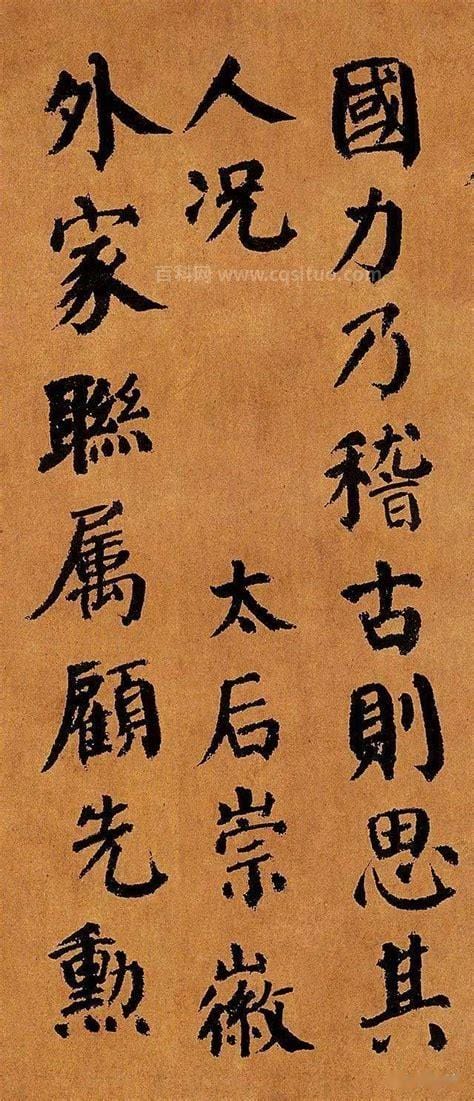 國力乃稽古則思其
人况 太后崇徽
外家聯属顧先勳
百科网 www.cqsituo.com